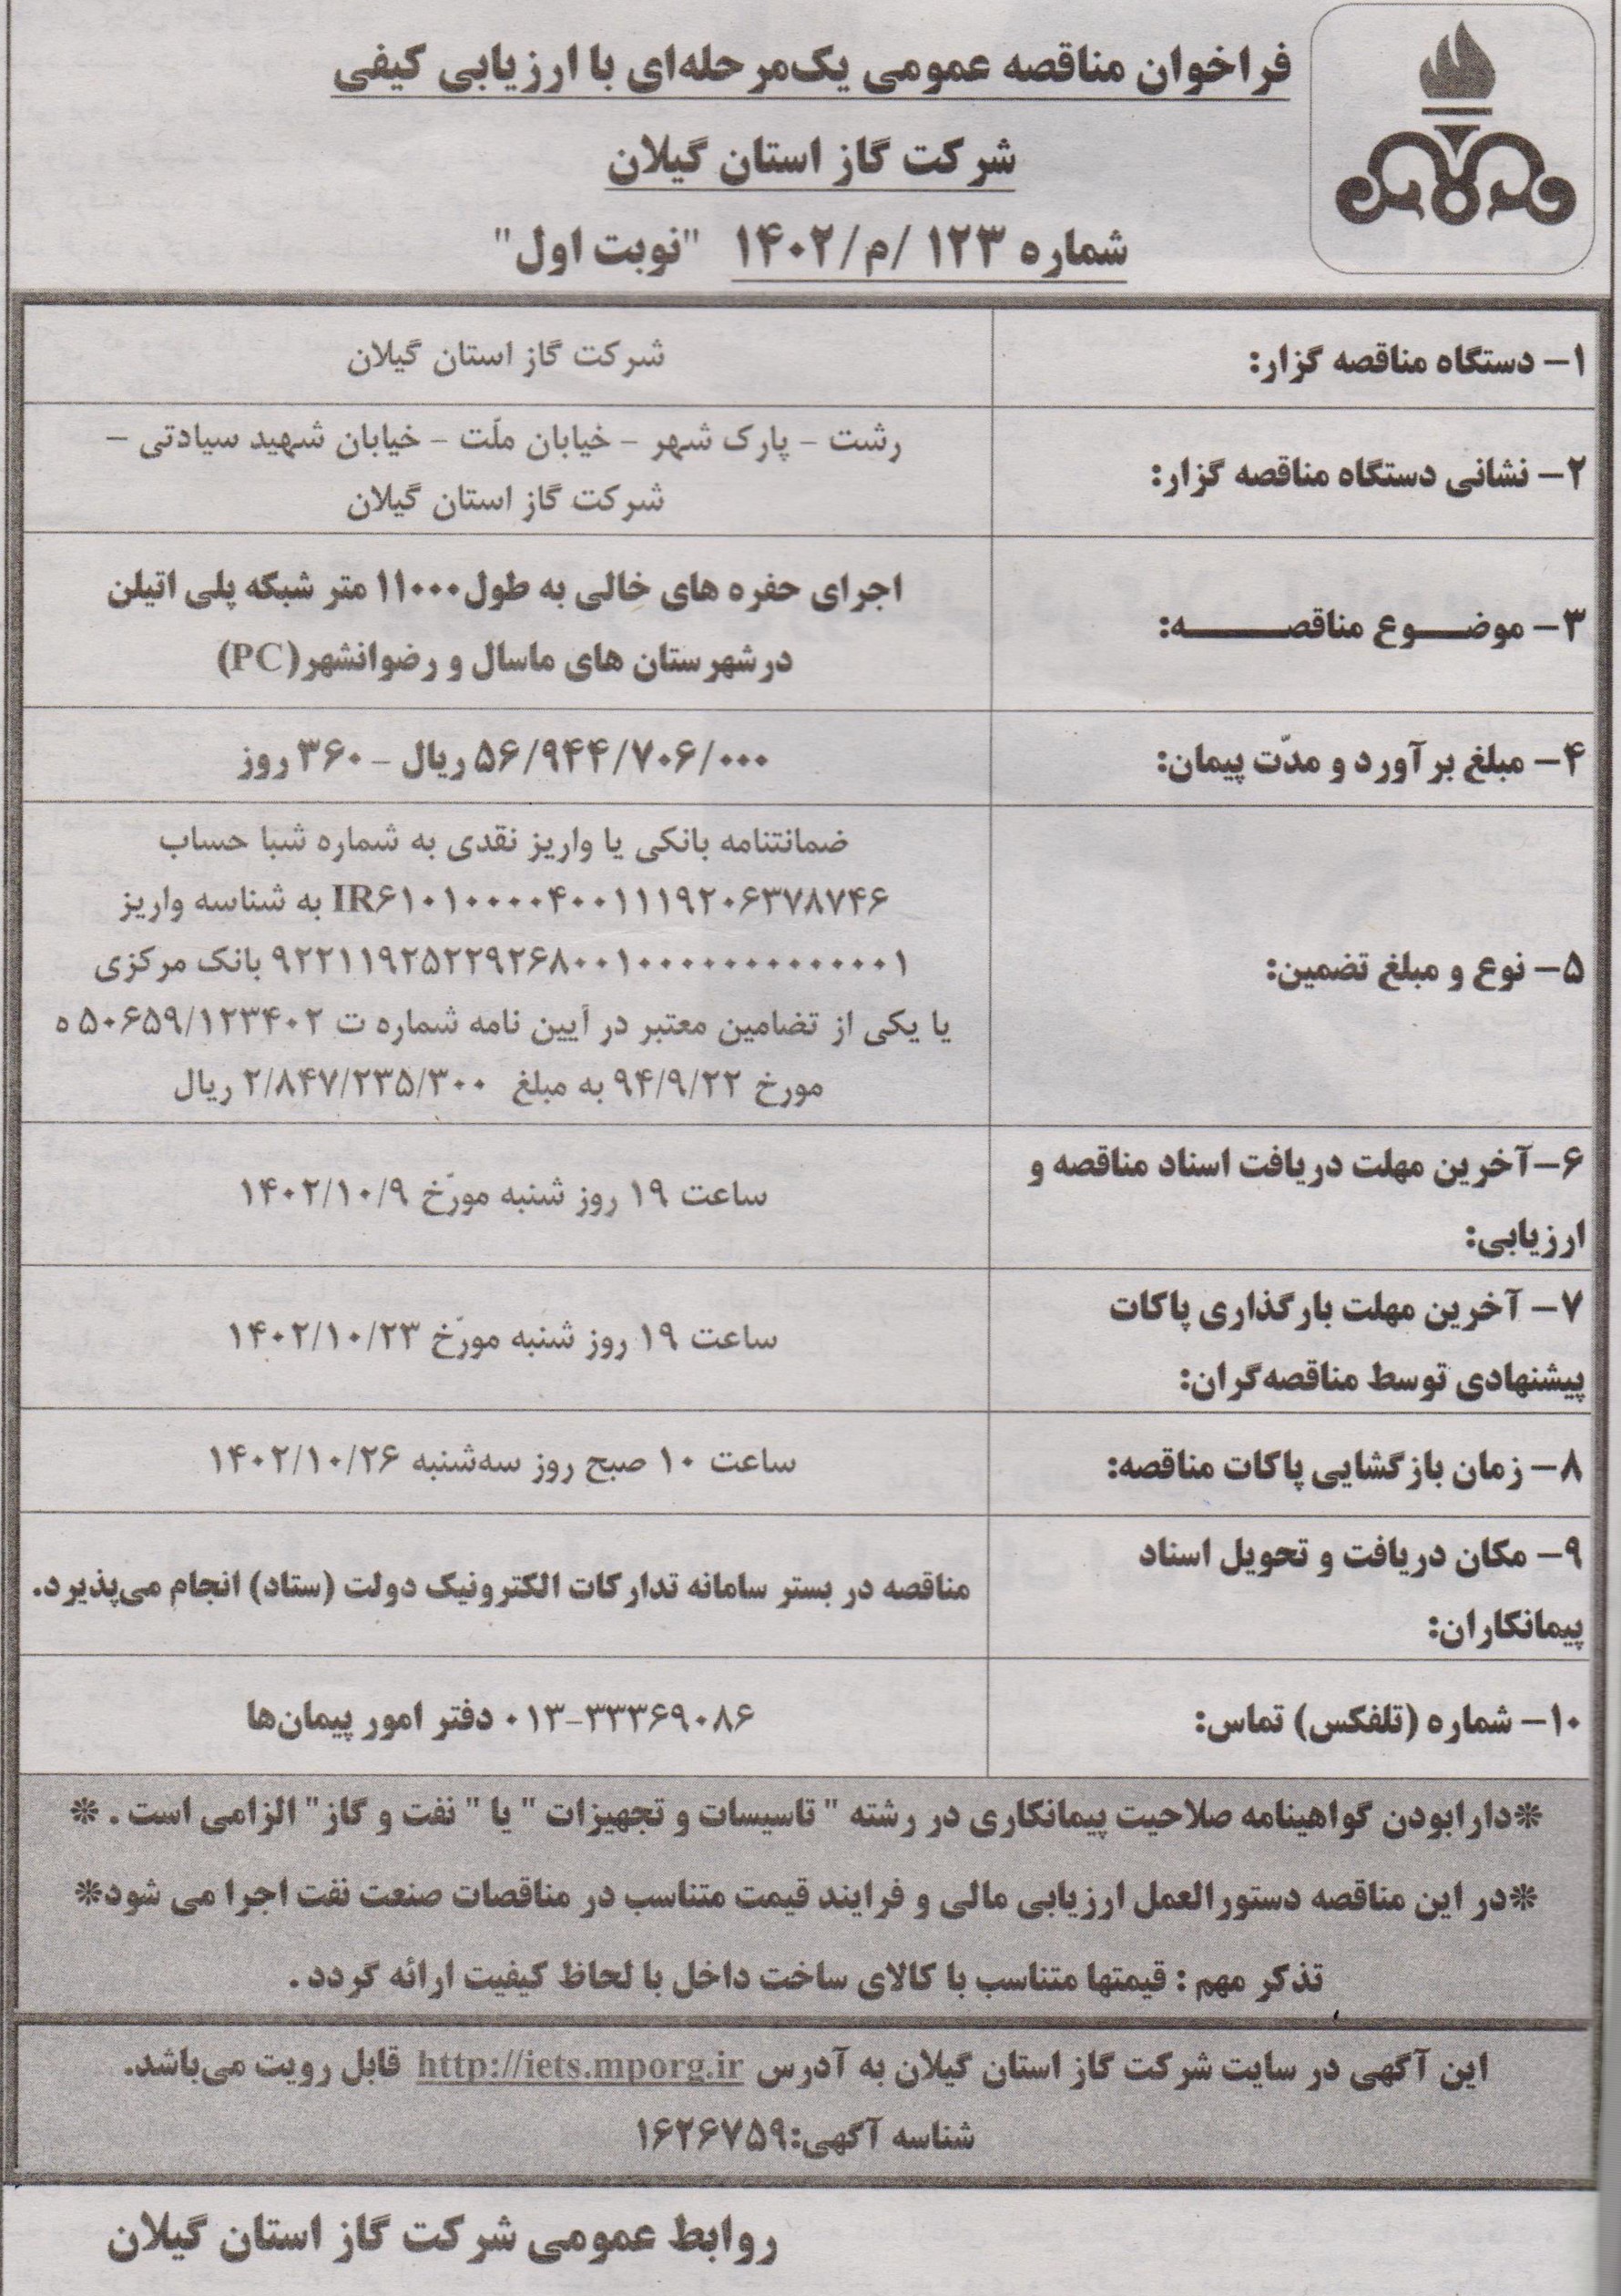 فراخوان مناقصه عمومی یک‌مرحله‌ای با ارزیابی کیفی
شرکت گاز استان گیلان
شماره ۱۲۳ /م/۱۴۰۲ "نوبت اول"
۱- دستگاه مناقصه گزار:
شرکت گاز استان گیلان
۲- نشانی دستگاه مناقصه گزار:
رشت - پارک شهر - خیابان ملّت - خیابان شهید سیادتی -
شرکت گاز استان گیلان
۳- موضـــوع مناقصــــــه:
اجرای حفره های خالی به طول۱۱۰۰۰ متر شبکه پلی اتیلن
درشهرستان های ماسال و رضوانشهر(PC)
۴- مبلغ برآورد و مدّت پیمان:
۵۶/۹۴۴/۷۰۶/۰۰۰ ریال - ۳۶۰ روز
۵- نوع و مبلغ تضمین:
ضمانتنامه بانکی یا واریز نقدی به شماره شبا حساب
IR۶۱۰۱۰۰۰۰۴۰۰۱۱۱۹۲۰۶۳۷۸۷۴۶ به شناسه واریز
۹۲۲۱۱۹۲۵۲۲۹۲۶۸۰۰۱۰۰۰۰۰۰۰۰۰۰۰۰۱ بانک مرکزی
یا یکی از تضامین معتبر در آیین نامه شماره ت ۵۰۶۵۹/۱۲۳۴۰۲ ه
مورخ ۹۴/۹/۲۲ به مبلغ ۲/۸۴۷/۲۳۵/۳۰۰ ریال
۶-آخرین مهلت دریافت اسناد مناقصه و
ارزیابی:
ساعت ۱۹ روز شنبه مورّخ ۱۴۰۲/۱۰/۹
۷- آخرین مهلت بارگذاری پاکات
پیشنهادی توسط مناقصه‌گران:
ساعت ۱۹ روز شنبه مورّخ ۱۴۰۲/۱۰/۲۳
۸- زمان بازگشایی پاکات مناقصه:
ساعت ۱۰ صبح روز سه‌شنبه ۱۴۰۲/۱۰/۲۶
۹- مکان دریافت و تحویل اسناد
پیمانکاران:
مناقصه در بستر سامانه تدارکات الکترونیک دولت (ستاد) انجام می‌پذیرد.
۱۰- شماره (تلفکس) تماس:
۰۱۳-۳۳۳۶۹۰۸۶ دفتر امور پیمان‌ها
❊دارابودن گواهینامه صلاحیت پیمانکاری در رشته " تاسیسات و تجهیزات " یا " نفت و گاز" الزامی است . ❊
❊در این مناقصه دستورالعمل ارزیابی مالی و فرایند قیمت متناسب در مناقصات صنعت نفت اجرا می شود❊
تذکر مهم : قیمتها متناسب با کالای ساخت داخل با لحاظ کیفیت ارائه گردد .
این آگهی در سایت شرکت گاز استان گیلان به آدرس http://iets.mporg.ir قابل رویت می‌باشد.
شناسه آگهی:۱۶۲۶۷۵۹
روابط عمومی شرکت گاز استان گیلان